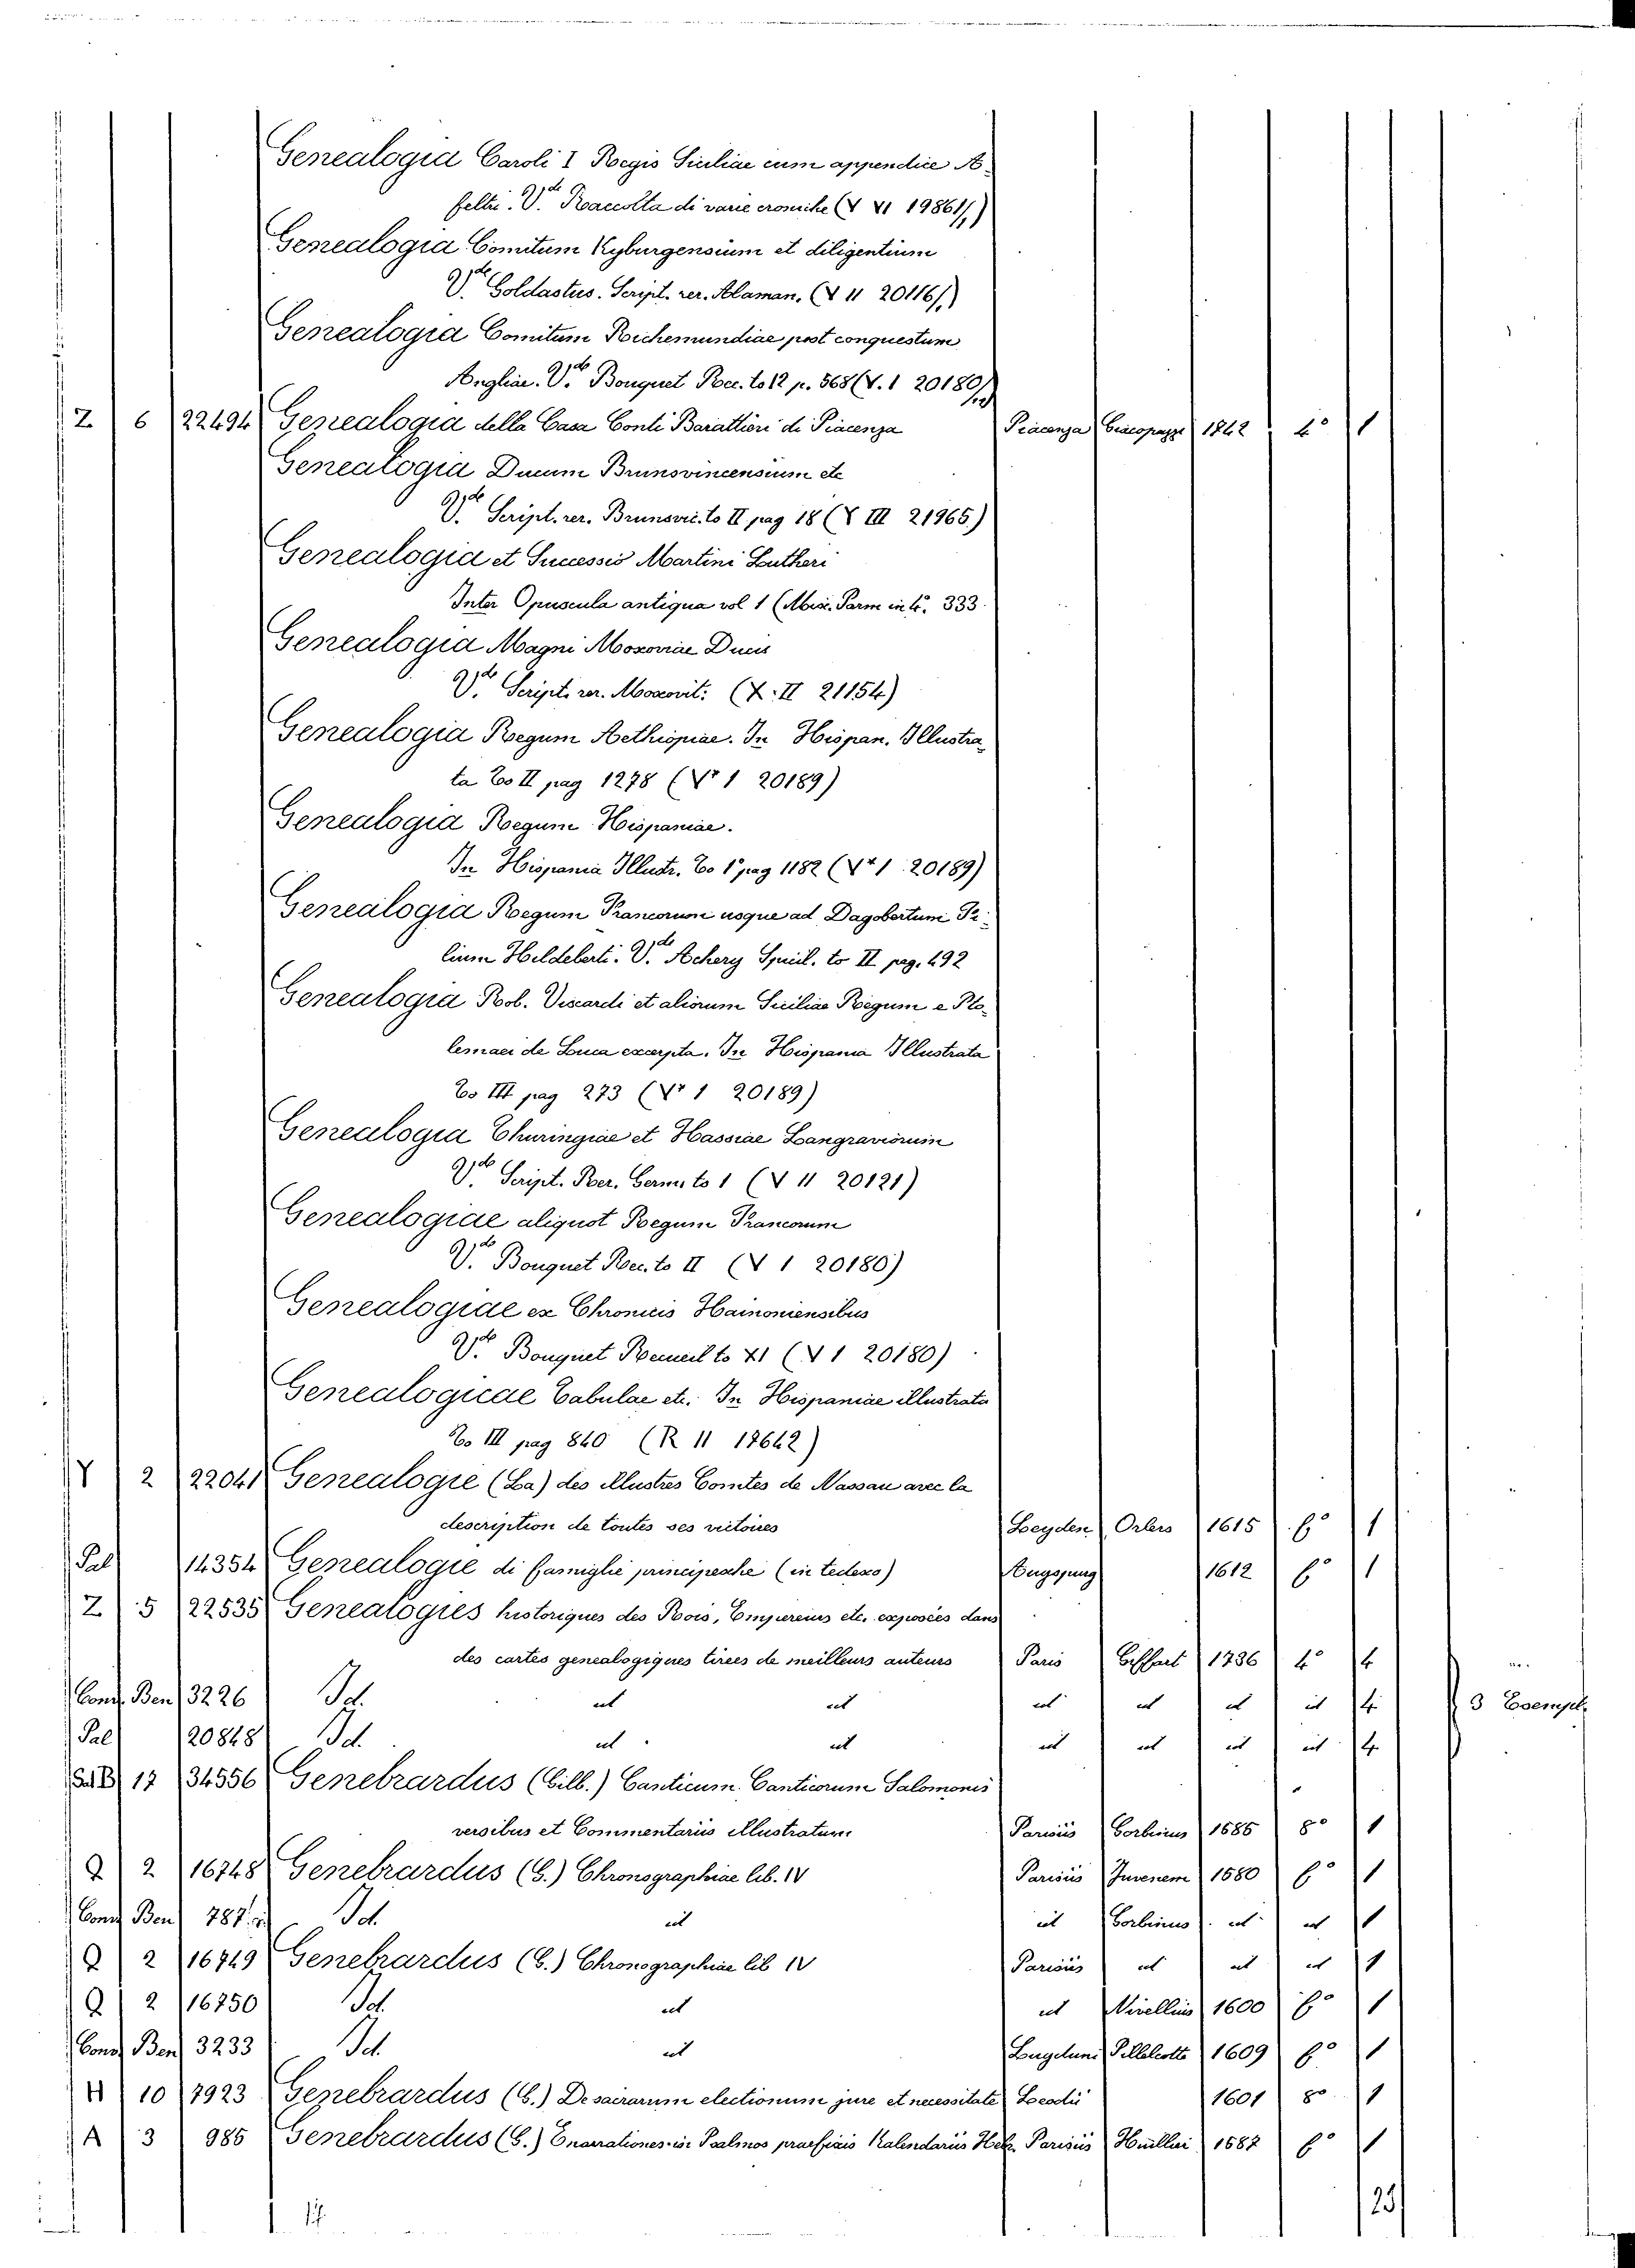 Genealogia Caroli I Regis Siciliae cum appendice A.
feltri. V.de Raccolta di varie croniche (V VI 19861/1)
Genealogia Comitum Kyburgensium et diligentium
V.de Goldastus. Script. rer. Alaman. (V 11 20116/1)
Genealogia Comitum Richemundiae post conquestum
Angliae. V.de Bouquet Rec. to 12 p. 568 (V. 1 20180/12)
Z 6 22494 Genealogia della Casa Conti Barattieri di Piacenza Piacenza 1842 4° 1
Genealogia Ducum Brunsvincensium etc
V.de Script. rer. Brunsvic. to II pag 18 (Y III 21965)
Genealogia et Successio Martini Lutheri
Inter Opuscula antiqua vol 1 (Misc. Parm in 4°. 333
Genealogia Magni Moscoviae Ducis
V.de Script. rer. Moscovit. (X. II 21154)
Genealogia Regum Aethiopiae. In Hispan. Illustra
ta To II pag 1278 (Vr 1 20189)
Genealogia Regum Hispaniae.
In Hispania Illustr. To 1° pag 1182 (Vr 1 20189)
Genealogia Regum Francorum usque ad Dagobertum Fi
lium Hildeberti. V.de Achery Spicil. to II pag. 492
Genealogia Rob. Viscardi et aliorum Siciliae Regum e Pto
lemaei de Luca excerpta. In Hispania Illustrata
To III pag 273 (Vr 1 20189)
Genealogia Thuringiae et Hassiae Langraviorum
V.de Script. Rer. Germ. to 1 (V 11 20121)
Genealogiae aliquot Regum Francorum
V.de Bouquet Rec. to II (V 1 20180)
Genealogiae ex Chronicis Hainoniensibus
V.de Bouquet Recueil to XI (V 1 20180)
Genealogicae Tabulae etc. In Hispaniae illustrata
To III pag 840 (R 11 18642)
Y 2 22041 Genealogie (La) des illustres Comtes de Nassau avec la
description de toutes ses victoires Leyden Orlers 1615 f° 1
Pal 14354 Genealogie di famiglie principesche (in tedesco) 1612 f° 1
Z 5 22535 Genealogies historiques des Rois, Empereurs etc. exposées dans
des cartes genealogiques tirees de meilleurs auteurs Paris Giffart 1736 4° 4
Cons. Ben 3226 Id. ut ut ut ut ut ut 4 3 Esempl.
Pal 20848 Id. ut ut ut ut ut ut 4
Sal B 17 34556 Genebrardus (Gilb.) Canticum Canticorum Salomonis
versibus et Commentariis illustratum Parisiis Gorbinus 1585 8° 1
Q 2 16748 Genebrardus (G.) Chronographiae lib. IV Parisiis Juvenem 1580 f° 1
Cons. Ben 787 Id. ut ut Gorbinus ut ut 1
Q 2 16749 Genebrardus (G.) Chronographiae lib IV Parisiis ut ut ut 1
Q 2 16750 Id. ut ut Nivellius 1600 f° 1
Cons. Ben 3233 Id. ut Lugduni Pillelotte 1609 f° 1
H 10 7923 Genebrardus (G.) De sacrarum electionum jure et necessitate Leodii 1601 8° 1
A 3 985 Genebrardus (G.) Enarrationes in Psalmos praefixis Kalendariis Heb. Parisiis Hüllier 1587 f° 1
17
23